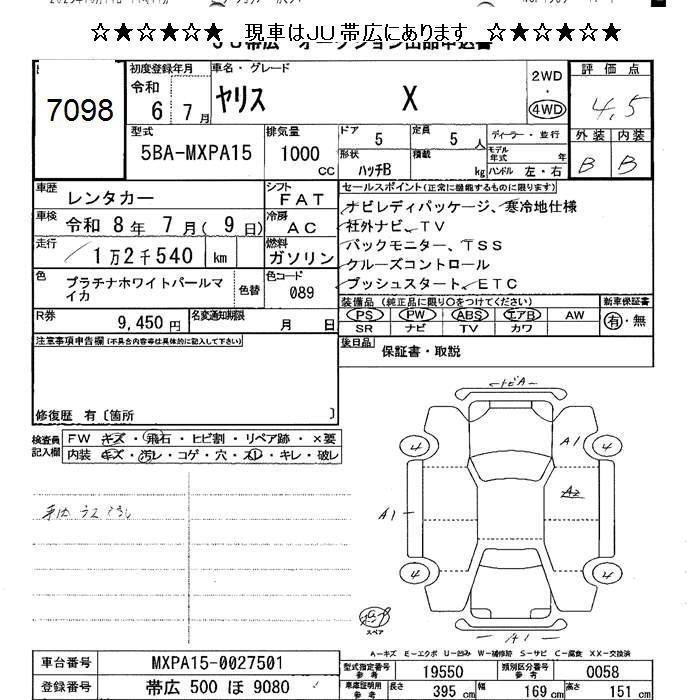 ☆★☆★☆★ 現車はJU帯広にあります ☆★☆★☆★
JU帯広 オークション出品申込書
7098
初度登録年月 車名・グレード 2WD・4WD 評価点
令和 6年 7月 ヤリス X 4.5
型式 排気量 ドア 定員 ディーラー・並行 外装 内装
5BA-MXPA15 1000 CC 5 5人 モデル年式 年 B B
形状 ハッチB 積載 kg ハンドル 左・右
車歴 レンタカー シフト FAT セールスポイント(正常に機能するものに限ります)
車検 令和 8年 7月( 9日) 冷房 AC
走行 1万2千540 km 燃料 ガソリン
ナビレディパッケージ、寒冷地仕様
社外ナビ、TV
バックモニター、TSS
クルーズコントロール
プッシュスタート、ETC
色 プラチナホワイトパールマイカ 色替 色コード 089
装備品(純正品に限り○をつけてください) 新車保証書
PS PW ABS エアB AW 有・無
SR ナビ TV カワ
R券 9,450円 名変通知期限 月 日
後日品 保証書・取説
注意事項申告欄(不具合内容等は具体的に記入して下さい)
修復歴 有〔箇所 〕
検査員記入欄 FW キズ・飛石・ヒビ割・リペア跡・×要
内装 キズ・汚レ・コゲ・穴・スレ・キレ・破レ
トビA
A1
4 4
A2
A1
4 4
スペア
A1
A-キズ E-エクボ U-凹み W-補修跡 S-サビ C-腐食 XX-交換済
車台番号 MXPA15-0027501
登録番号 帯広 500 ほ 9080
型式指定番号参考 19550 類別区分番号参考 0058
車庫証明用参考 長さ 395 cm 幅 169 cm 高さ 151 cm